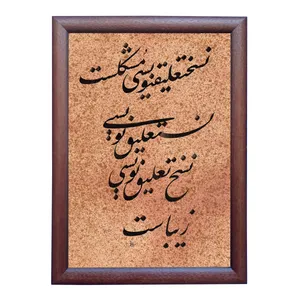 نسختعلیقنویسی مشکلست
نستعلیق نویسی
نسخ تعلیق نویسی
زیباست